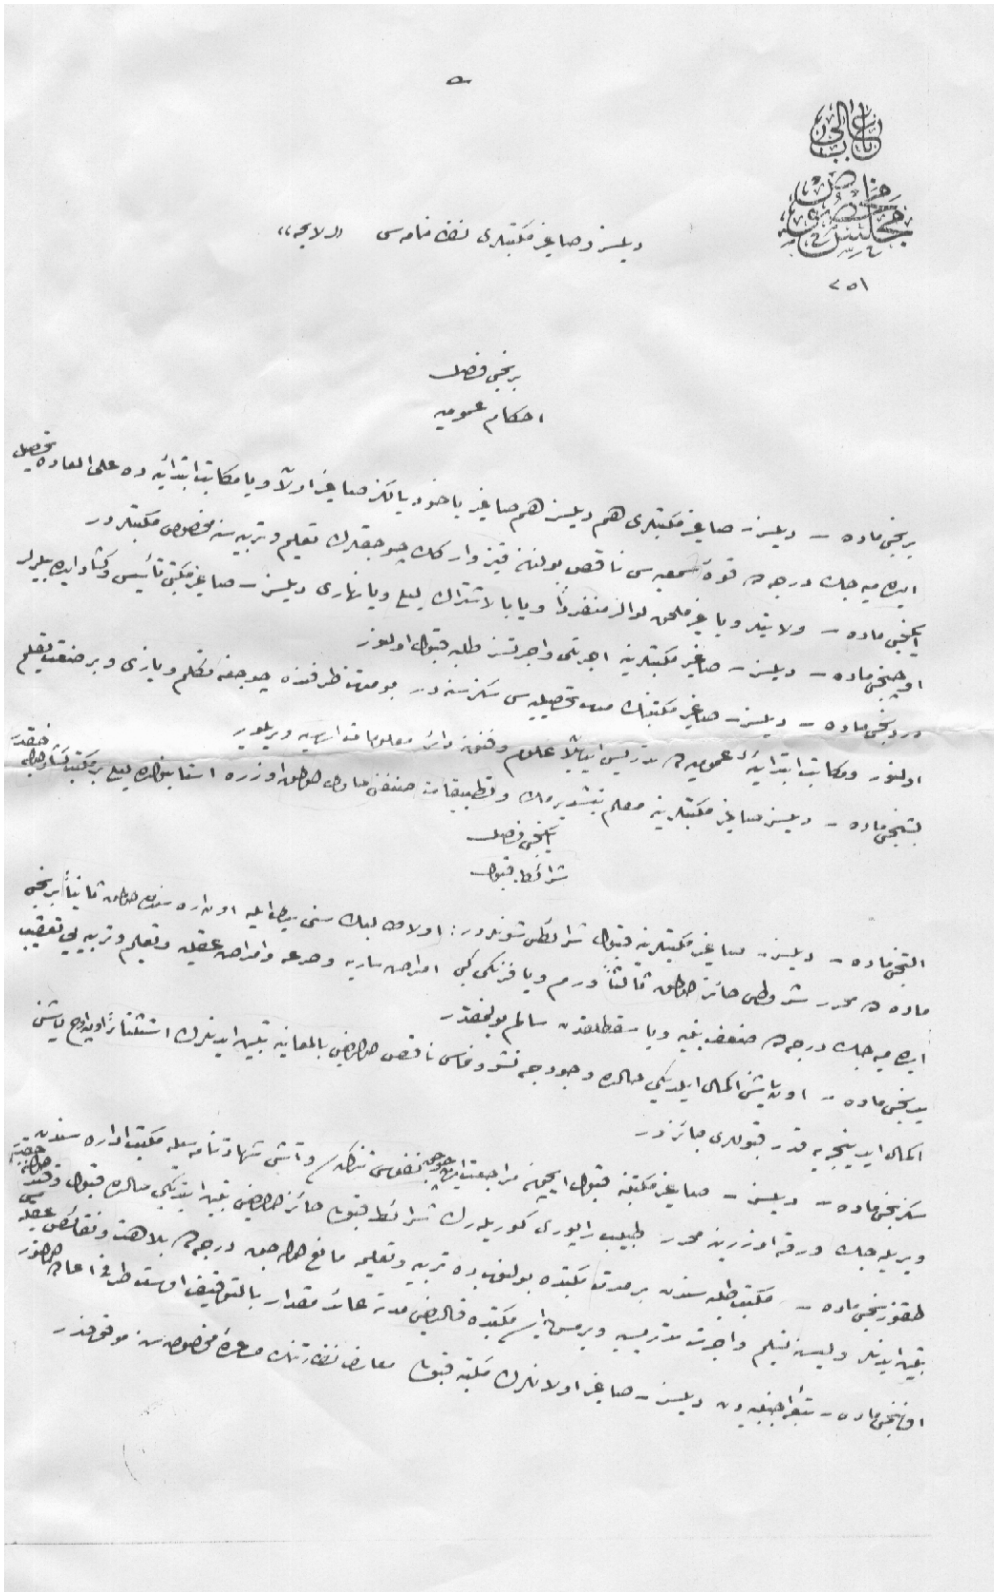 باب عالی
مجلس مخصوص
٢٥١
دیلسز و صاغیر مکتبلری نظامنامه‌سی «لایحه»
برنجی فصل
احکام عمومیه
برنجی ماده – دیلسز – صاغیر مکتبلری هم دیلسز هم صاغیر یاخود یالکز صاغیر اولان ویا مکاتب ابتدائیه ده علی العاده تحصیل
ایده میه جك درجه ده قوهٔ سمعیه سی ناقص بولنان قیز وارکك چوجقلرك تعلیم و تربیه سنه مخصوص مکتبلردر
ایکنجی ماده – ولایتلر ویا غیر ملحق لوالر منفرداً ویا بالاشتراك لیلی ویا نهاری دیلسز – صاغیر مکتبی تأسیس و کشاد ایده بیلیرلر
اوچنجی ماده – دیلسز – صاغیر مکتبلرینه اجرتلی و اجرتسز طلبه قبول اولنور
دردنجی ماده – دیلسز – صاغیر مکتبنك مدت تحصیلیه سی سکز سنه در بو مدت ظرفنده چوجغه تکلم ویازی و بر صنعت تعلیم
اولنور و مکاتب ابتدائیهٔ عمومیه ده تدریس ایدیلن علوم و فنونه دائر معلومات ویریلور
بشنجی ماده – دیلسز صاغیر مکتبلرینه معلم یتشدیرمك و تطبیقات اولمق اوزره استانبولده لیلی بر مکتب کشاد
ایکنجی فصل
شرائط قبول
التنجی ماده – دیلسز – صاغیر مکتبلرینه قبول شرائطی شونلردر: اولا سنی یدی ایله اون اره سنده اولمق ثانیاً برنجی
ماده ده محرر شروطی حائز اولمق ثالثاً ورم ویا فرنکی کبی امراض ساریه و صرعه و امراض عقلیه و تعلیم و تربیه یی تعقیب
ایده میه جك درجه ده ضعف بنیه ویا سقطلقدن سالم بولنمقدر
یدنجی ماده – اون یاشنی اکمال ایلدیکی حالده وجودجه نشو و نماسی ناقص اولدیغی بالمعاینه تبین ایدنلرك استثناءً اون اوچ یاشنی
اکمال ایدینجیه قدر قبوللری جائزدر
سکزنجی ماده – دیلسز – صاغیر مکتبنه قبول ایچون مراجعت ایدن چوجق نفوس تذکره سی و آشی شهادتنامه سیله مکتب اداره سندن
ویریله جك ورقه اوزرینه محرر طبیب راپوری کوریلەرك شرائط قبولی حائز اولدیغی تبین ایتدیکی حالده قبول
طقوزنجی ماده – مکتب طلبه سندن بر مدت مکتبده بولنوب ده تربیه و تعلیمه مانع اوله جق درجه ده بلاهت و نقائص عقلیه سی
تبین ایدنلر ولیسنه تسلیم و اجرت تدریسیه ویرمش ایسه مکتبده قالدیغی مدته عائد مقدار بالتوقیف طرفنه اعاده اولنور
اوننجی ماده – تبعهٔ اجنبیه دن دیلسز – صاغیر اولانلرك مکتبه قبولی معارف نظارتنك مساعدهٔ مخصوصه سنه موقوفدر